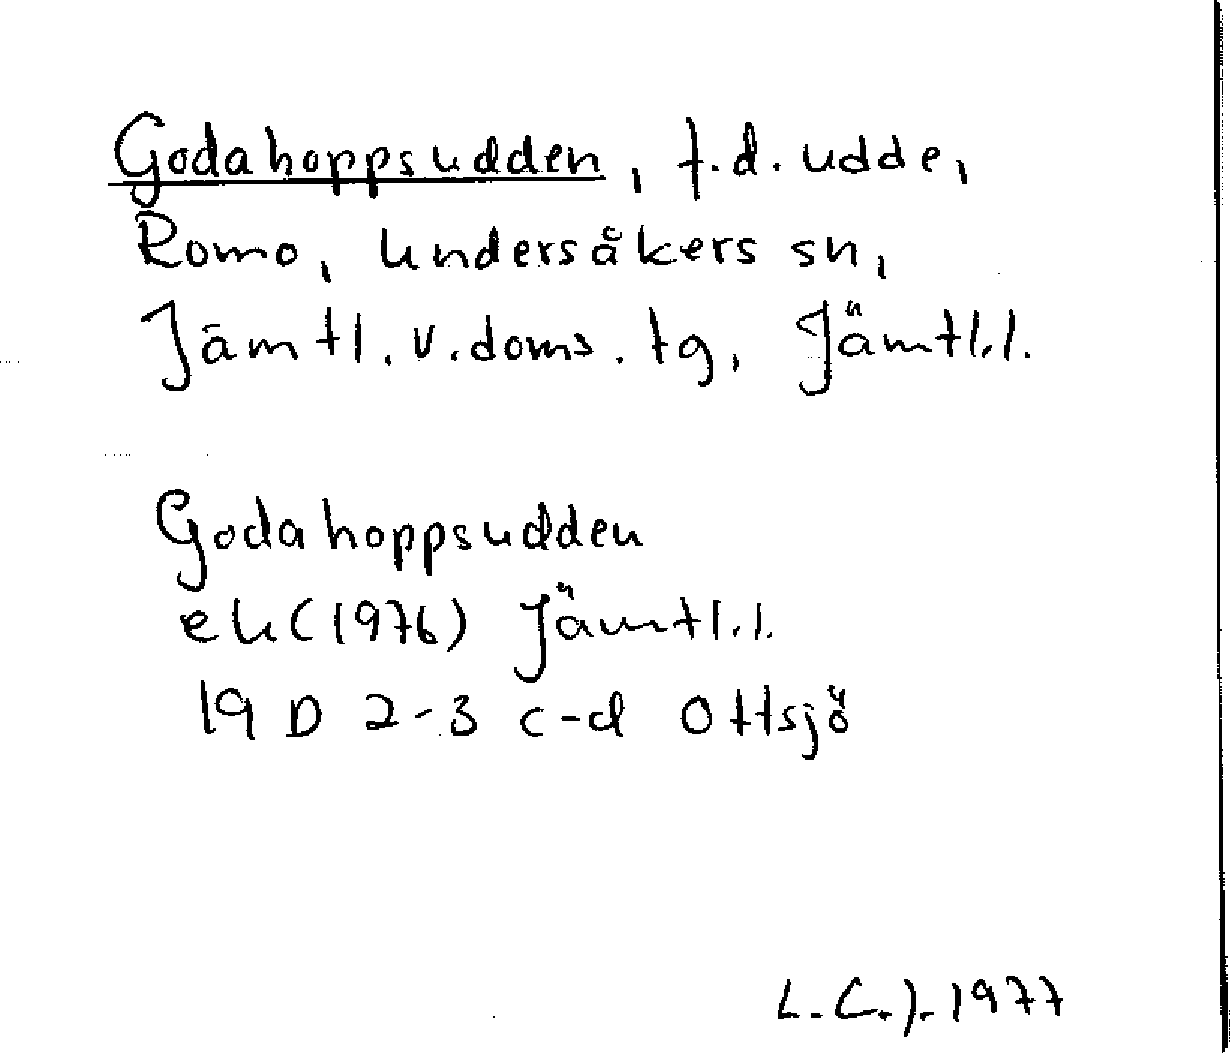 Godahoppsudden, f.d. udde,
Romo, Undersåkers sn,
Jämtl. v. doms. tg, Jämtl.l.
Godahoppsudden
ek (1976) Jämtl.l.
19 D 2-3 c-d Ottsjö
L.C.J. 1977